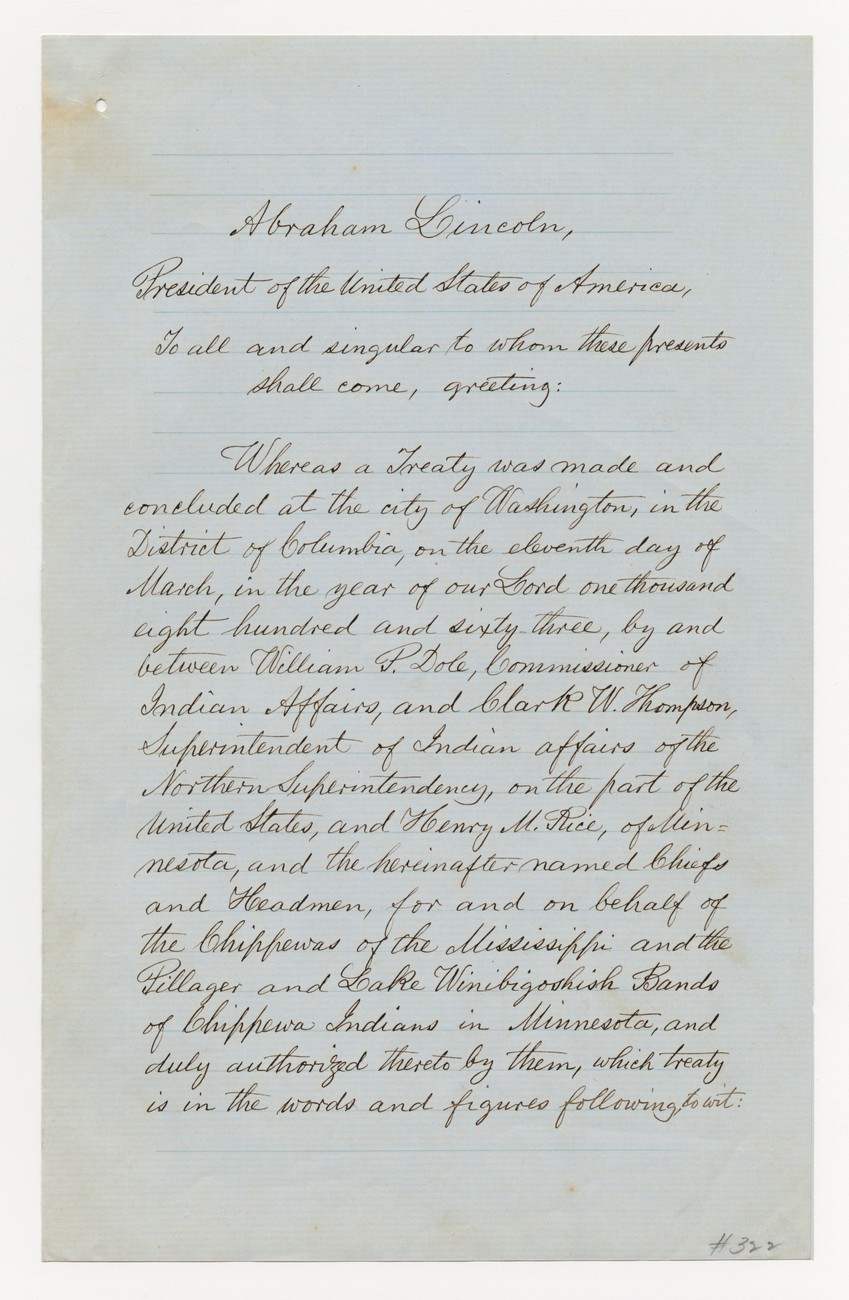 Abraham Lincoln,
President of the United States of America,
To all and singular to whom these presents
shall come, greeting:
Whereas a Treaty was made and
concluded at the city of Washington, in the
District of Columbia, on the eleventh day of
March, in the year of our Lord one thousand
eight hundred and sixty-three, by and
between William P. Dole, Commissioner of
Indian Affairs, and Clark W. Thompson,
Superintendent of Indian affairs of the
Northern Superintendency, on the part of the
United States, and Henry M. Rice, of Min=
nesota, and the hereinafter named Chiefs
and Headmen, for and on behalf of
the Chippewas of the Mississippi and the
Pillager and Lake Winibigoshish Bands
of Chippewa Indians in Minnesota, and
duly authorized thereto by them, which treaty
is in the words and figures following, to wit:
#322